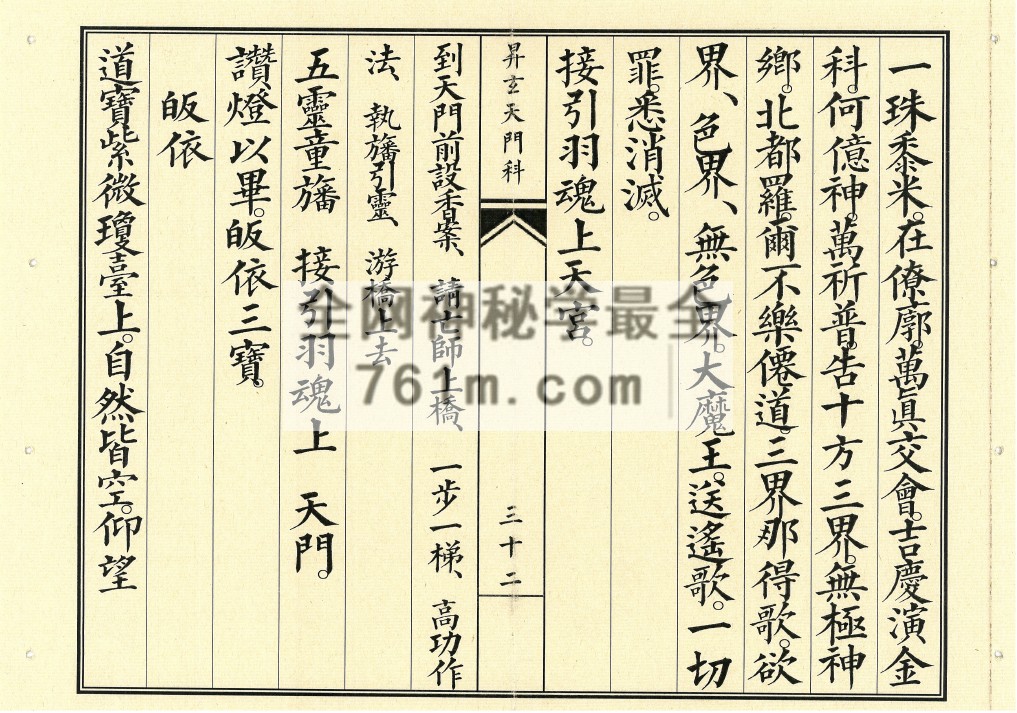 一珠黍米。在僚廓。萬真交會。吉慶演金
科。何億神。萬祈普。告十方三界。無極神
鄉。北都羅。爾不樂僊道。三界那得歌。欲
界、色界、無色界。大魔王。送遙歌。一切
罪。悉消滅。
接引羽魂上天宮。
昇玄天門科
三十二
到天門前設香案、請亡師上橋、一步一梯、高功作
法、執旛引靈、游橋上去
五靈童旛 接引羽魂上 天門。
讚燈以畢。皈依三寶。
皈依
道寶紫微瓊臺上。自然皆空。仰望
全网神秘学最全
761m.com